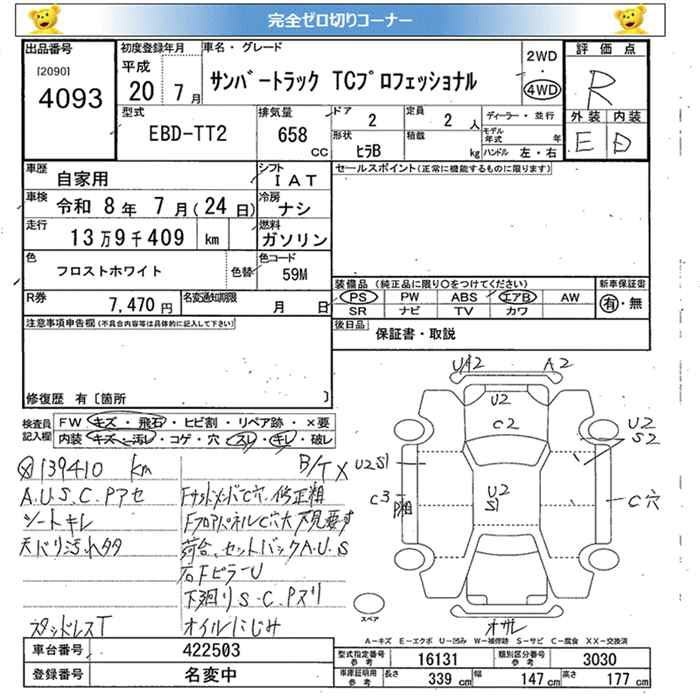 完全ゼロ切りコーナー
出品番号
[2090]
4093
初度登録年月
平成
20 7月
車名・グレード
サンバートラック TCプロフェッショナル
2WD
・
4WD
評価点
R
外装 内装
E D
型式
EBD-TT2
排気量
658
CC
ドア
2
定員
2 人
ディーラー・並行
モデル
年式 年
形状
ヒラB
積載
kg
ハンドル 左・右
車歴
自家用
シフト
IAT
セールスポイント(正常に機能するものに限ります)
車検
令和 8年 7月(24日)
冷房
ナシ
走行
13万9千409 km
燃料
ガソリン
色
フロストホワイト
色替
色コード
59M
装備品 (純正品に限り○をつけてください)
PS PW ABS エアB AW
SR ナビ TV カワ
新車保証書
有・無
R券
7,470円
名変通知期限
月 日
後日品
保証書・取説
注意事項申告欄(不具合内容等は具体的に記入して下さい)
修復歴 有〔箇所 〕
検査員
記入欄
FW キズ・飛石・ヒビ割・リペア跡・×要
内装 キズ・汚レ・コゲ・穴・スレ・キレ・破レ
139410 km
B/T X
A.U.S.C.Pアセ
シートキレ
天バリ汚れタタ
スタッドレスT
FサイドメンバC穴、修正粗
FフロアパネルC穴大 下見要す
荷台、セットバックA.U.S
右FピラーU
下廻りS.C.Pスリ
オイルにじみ
UA2 A2
U2
C2
U2
S2
U2S1
U2
S1
C3
C穴
スペア
オサレ
A−キズ E−エクボ U−凹み W−補修跡 S−サビ C−腐食 XX−交換済
車台番号
422503
登録番号
名変中
型式指定番号
参考
16131
類別区分番号
参考
3030
車庫証明用
参考
長さ
339 cm
幅
147 cm
高さ
177 cm